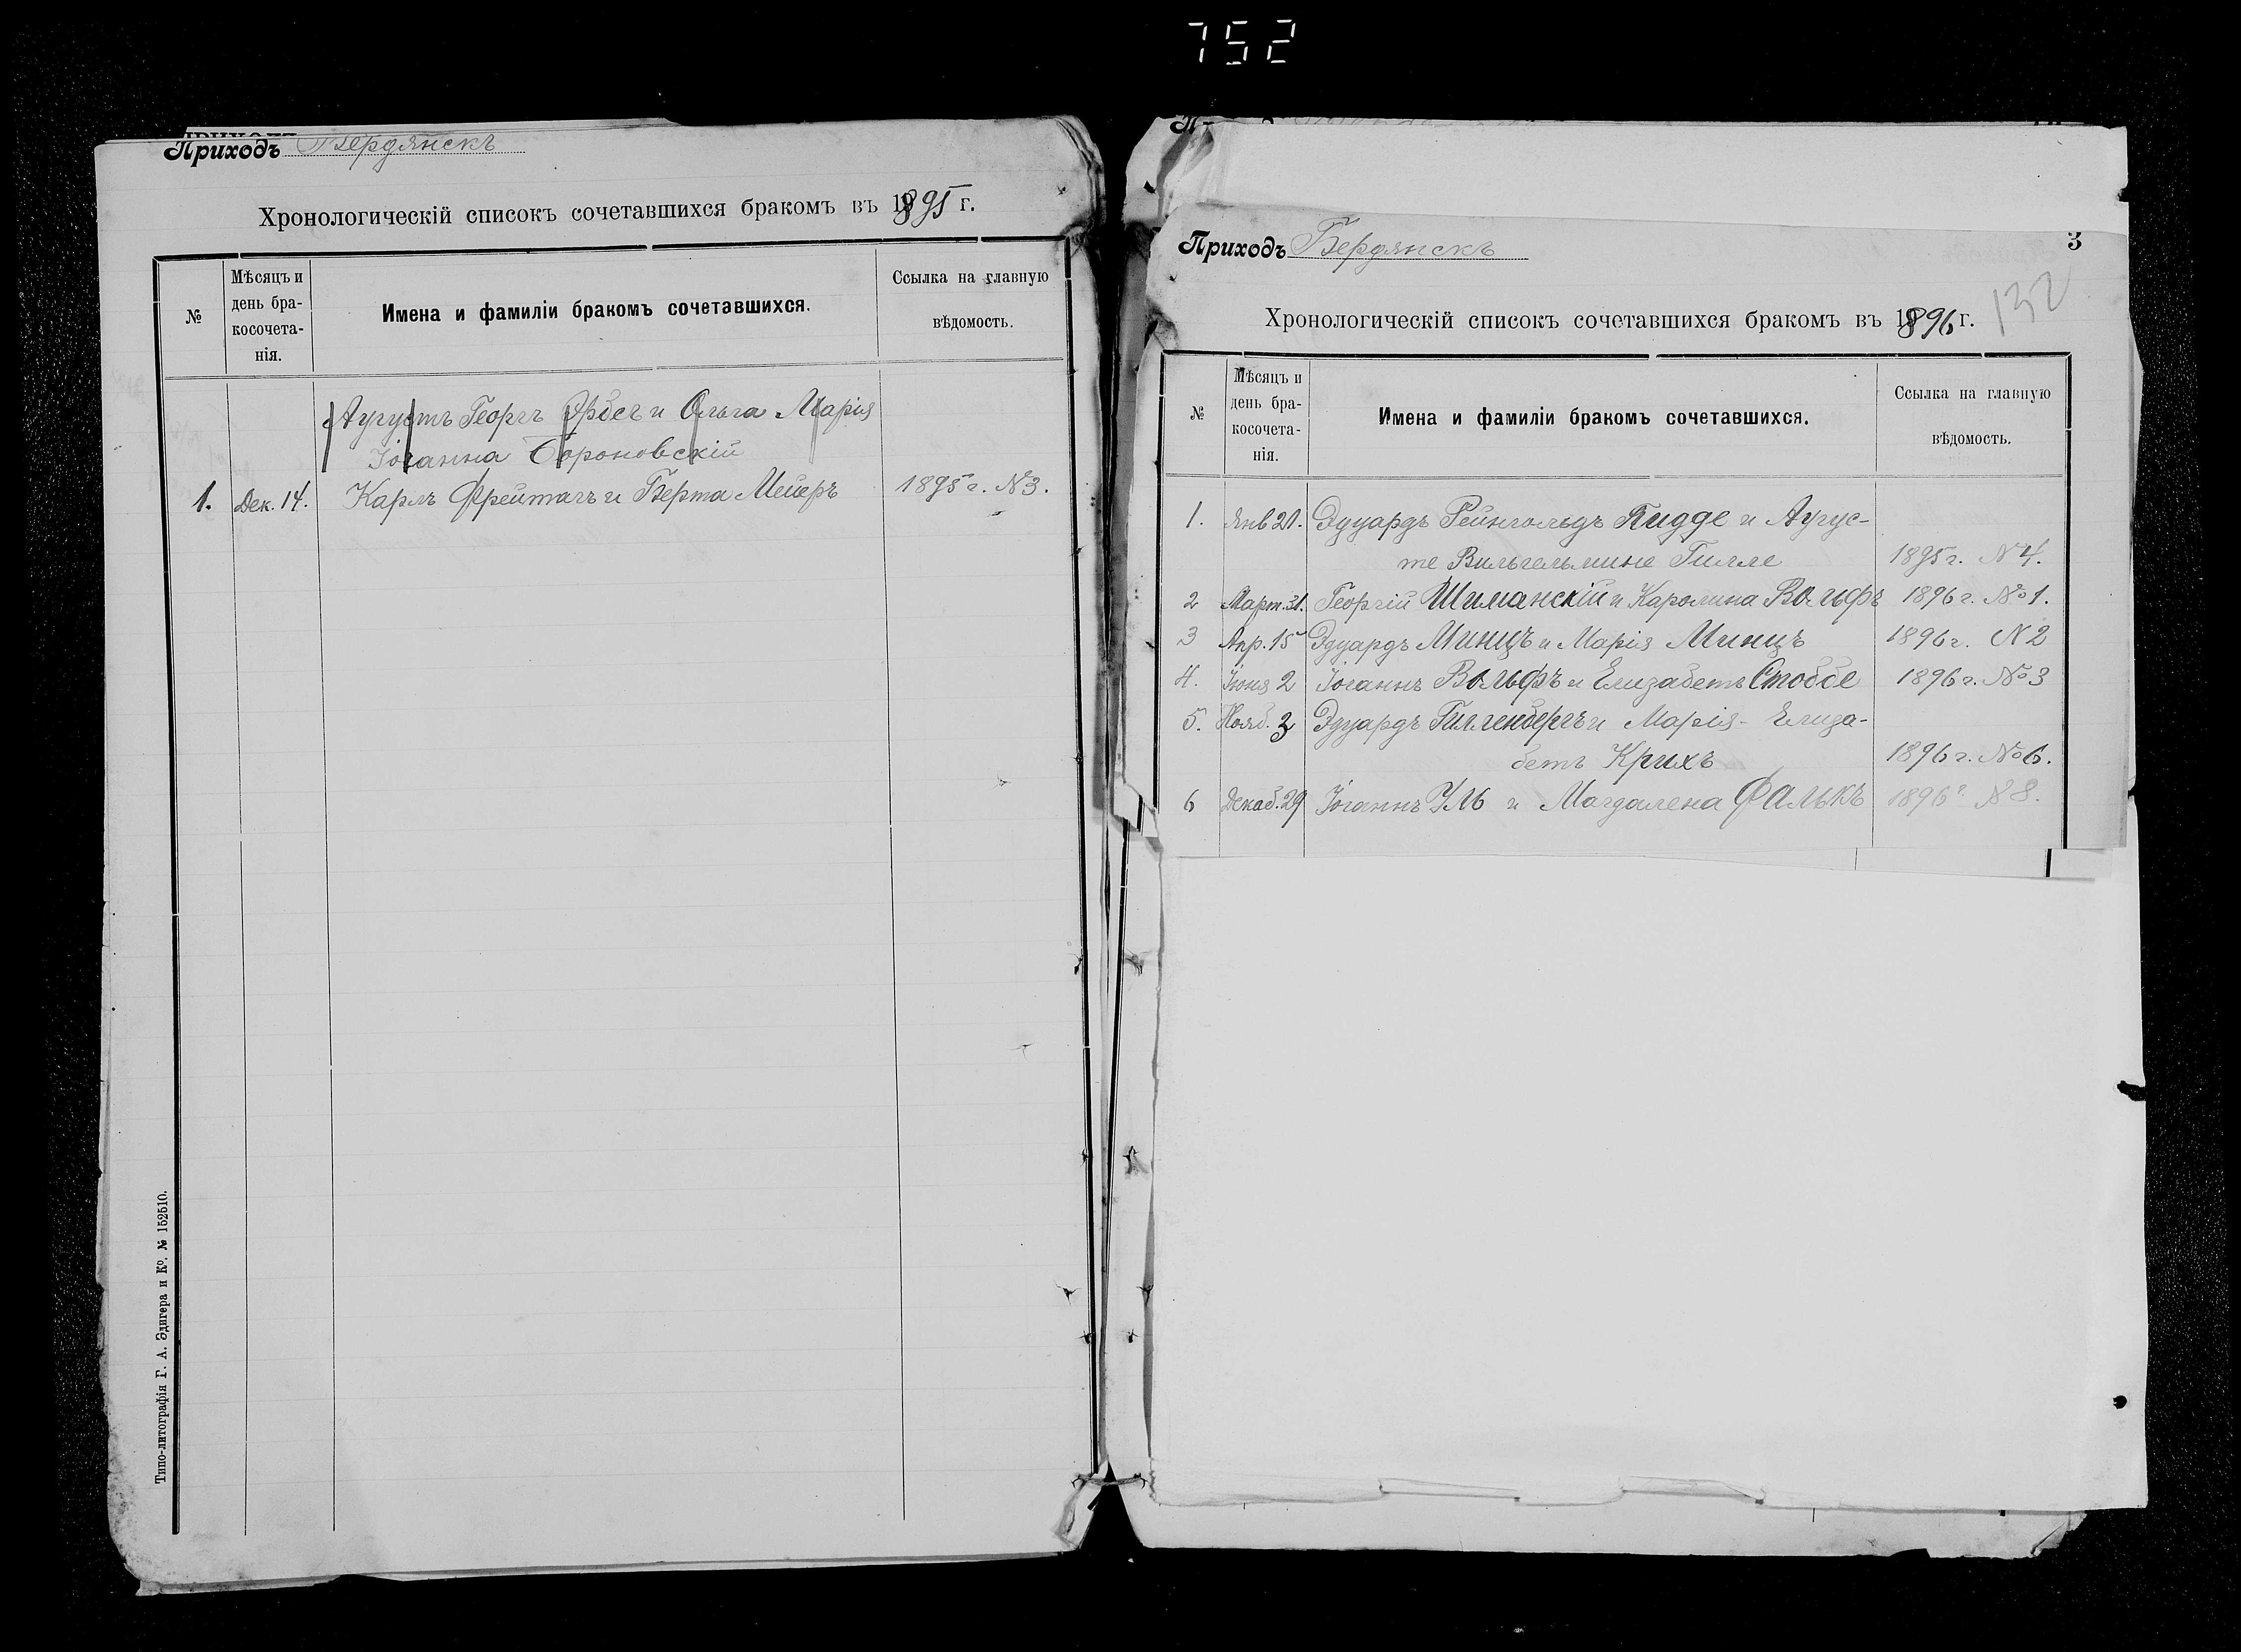 752
Приходъ Бердянскъ
Хронологическій списокъ сочетавшихся бракомъ въ 1895 г.
№
Мѣсяцъ и
день бра-
косочета-
нія.
Имена и фамиліи бракомъ сочетавшихся.
Ссылка на главную
вѣдомость.
Аугустъ Георгъ и Ольга Марія
Іоганна Бороновскій
1. Дек. 14. Карлъ Фрейтагъ и Берта Мейеръ 1895 г. N3.
Типо-литографія Г. А. Эдигера и Кº. № 152510.
Приходъ Бердянскъ
3
132
Хронологическій списокъ сочетавшихся бракомъ въ 1896 г.
№
Мѣсяцъ и
день бра-
косочета-
нія.
Имена и фамиліи бракомъ сочетавшихся.
Ссылка на главную
вѣдомость.
1. Янв 21. Эдуардъ Рейнгольдъ Пидде и Аугус-
те Вильгельмине Гилле 1895 г. N 4.
2 Март. 31. Георгій Шиманскій и Каролина Вольфъ 1896 г. № 1.
3 Апр. 15 Эдуардъ Минцъ и Марія Минцъ 1896 г. N 2
4. Іюня 2 Іоганнъ Вольфъ и Елизабетъ Стоббе 1896 г. № 3
5. Нояб. 3 Эдуардъ Гилленбергъ и Марія-Елиза-
бетъ Крихъ 1896 г. № 6.
6 Декаб. 29 Іоганнъ Уль и Магдалена Фалькъ 1896 г. N 8.